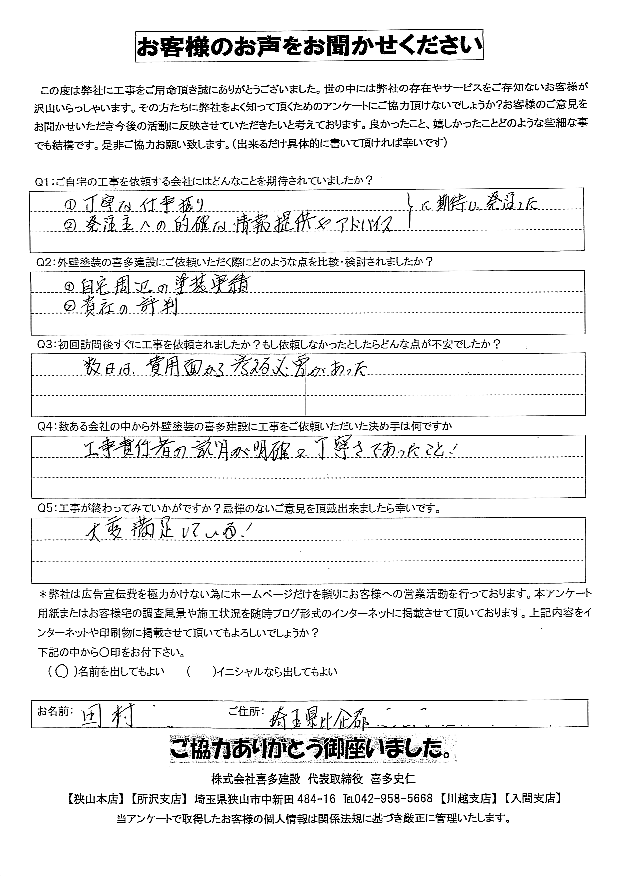 お客様のお声をお聞かせください
この度は弊社に工事をご用命頂き誠にありがとうございました。世の中には弊社の存在やサービスをご存知ないお客様が
沢山いらっしゃいます。その方たちに弊社をよく知って頂くためのアンケートにご協力頂けないでしょうか?お客様のご意見を
お聞かせいただき今後の活動に反映させていただきたいと考えております。良かったこと、嬉しかったことどのような些細な事
でも結構です。是非ご協力お願い致します。(出来るだけ具体的に書いて頂ければ幸いです)
Q1:ご自宅の工事を依頼する会社にはどんなことを期待されていましたか?
①丁寧な仕事振り
②発注主への的確な情報提供やアドバイス
に期待し発注した
Q2:外壁塗装の喜多建設にご依頼いただく際にどのような点を比較・検討されましたか?
①自宅周辺の塗装実績
②貴社の評判
Q3:初回訪問後すぐに工事を依頼されましたか?もし依頼しなかったとしたらどんな点が不安でしたか?
数日は、費用面から考える必要があった
Q4:数ある会社の中から外壁塗装の喜多建設に工事をご依頼いただいた決め手は何ですか
工事責任者の説明が明確で丁寧さであったこと!
Q5:工事が終わってみていかがですか?忌憚のないご意見を頂戴出来ましたら幸いです。
大変満足している!
＊弊社は広告宣伝費を極力かけない為にホームページだけを頼りにお客様への営業活動を行っております。本アンケート
用紙またはお客様宅の調査風景や施工状況を随時ブログ形式のインターネットに掲載させて頂いております。上記内容をイ
ンターネットや印刷物に掲載させて頂いてもよろしいでしょうか?
下記の中から○印をお付下さい。
(○)名前を出してもよい　(　)イニシャルなら出してもよい
お名前: 田村　ご住所: 埼玉県比企郡
ご協力ありがとう御座いました。
株式会社喜多建設 代表取締役 喜多史仁
【狭山本店】【所沢支店】 埼玉県狭山市中新田484-16 TEL042-958-5668 【川越支店】【入間支店】
当アンケートで取得したお客様の個人情報は関係法規に基づき厳正に管理いたします。